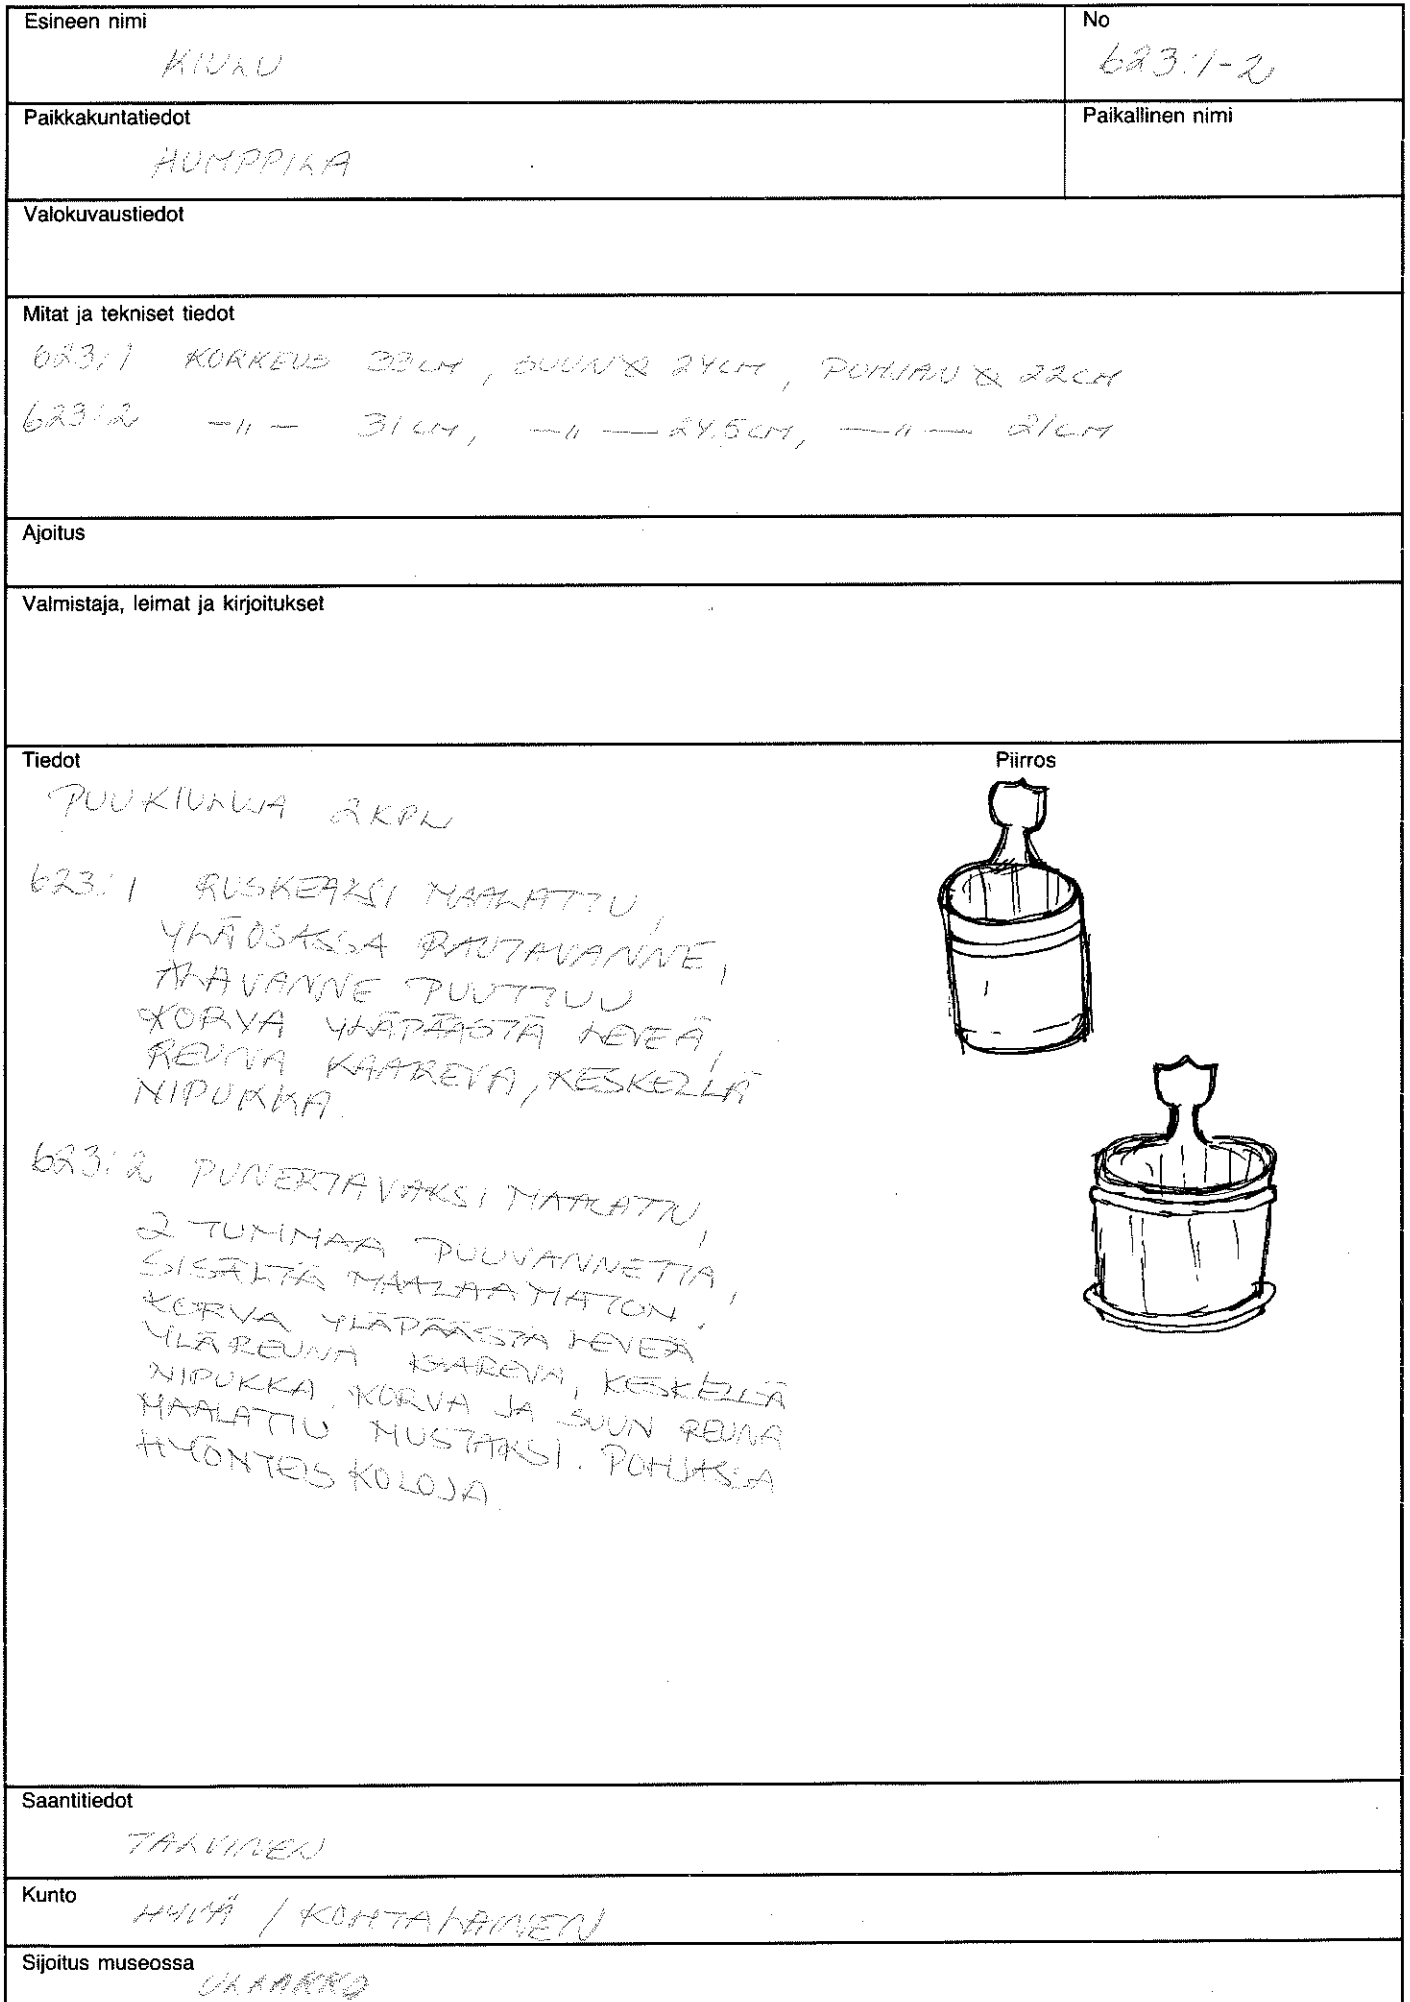 Esineen nimi
KIULU
No
623:1-2
Paikkakuntatiedot
HUMPPILA
Paikallinen nimi
Valokuvaustiedot
Mitat ja tekniset tiedot
623:1 KORKEUS 33CM, SUUN Ø 24CM, POHJAN Ø 22CM
623:2 -"- 31CM, -"- 24.5CM, -"- 21CM
Ajoitus
Valmistaja, leimat ja kirjoitukset
Tiedot
Piirros
PUUKIULUJA 2KPL
623:1 RUSKEAKSI MAALATTU,
YLÄOSASSA RAUTAVANNE,
ALAVANNE PUUTTUU
KORVA YLÄPÄÄSTÄ LEVEÄ,
REUNA KAAREVA, KESKELLÄ
NIPUKKA.
623:2 PUNERTAVAKSI MAALATTU,
2 TUMMAA PUUVANNETTA,
SISÄLTÄ MAALAAMATON.
KORVA YLÄPÄÄSTÄ LEVEÄ
YLÄREUNA KAAREVA, KESKELLÄ
NIPUKKA. KORVA JA SUUN REUNA
MAALATTU MUSTAKSI. POHJASSA
HYÖNTEISKOLOJA.
Saantitiedot
TALVINEN
Kunto
HYVÄ / KOHTALAINEN
Sijoitus museossa